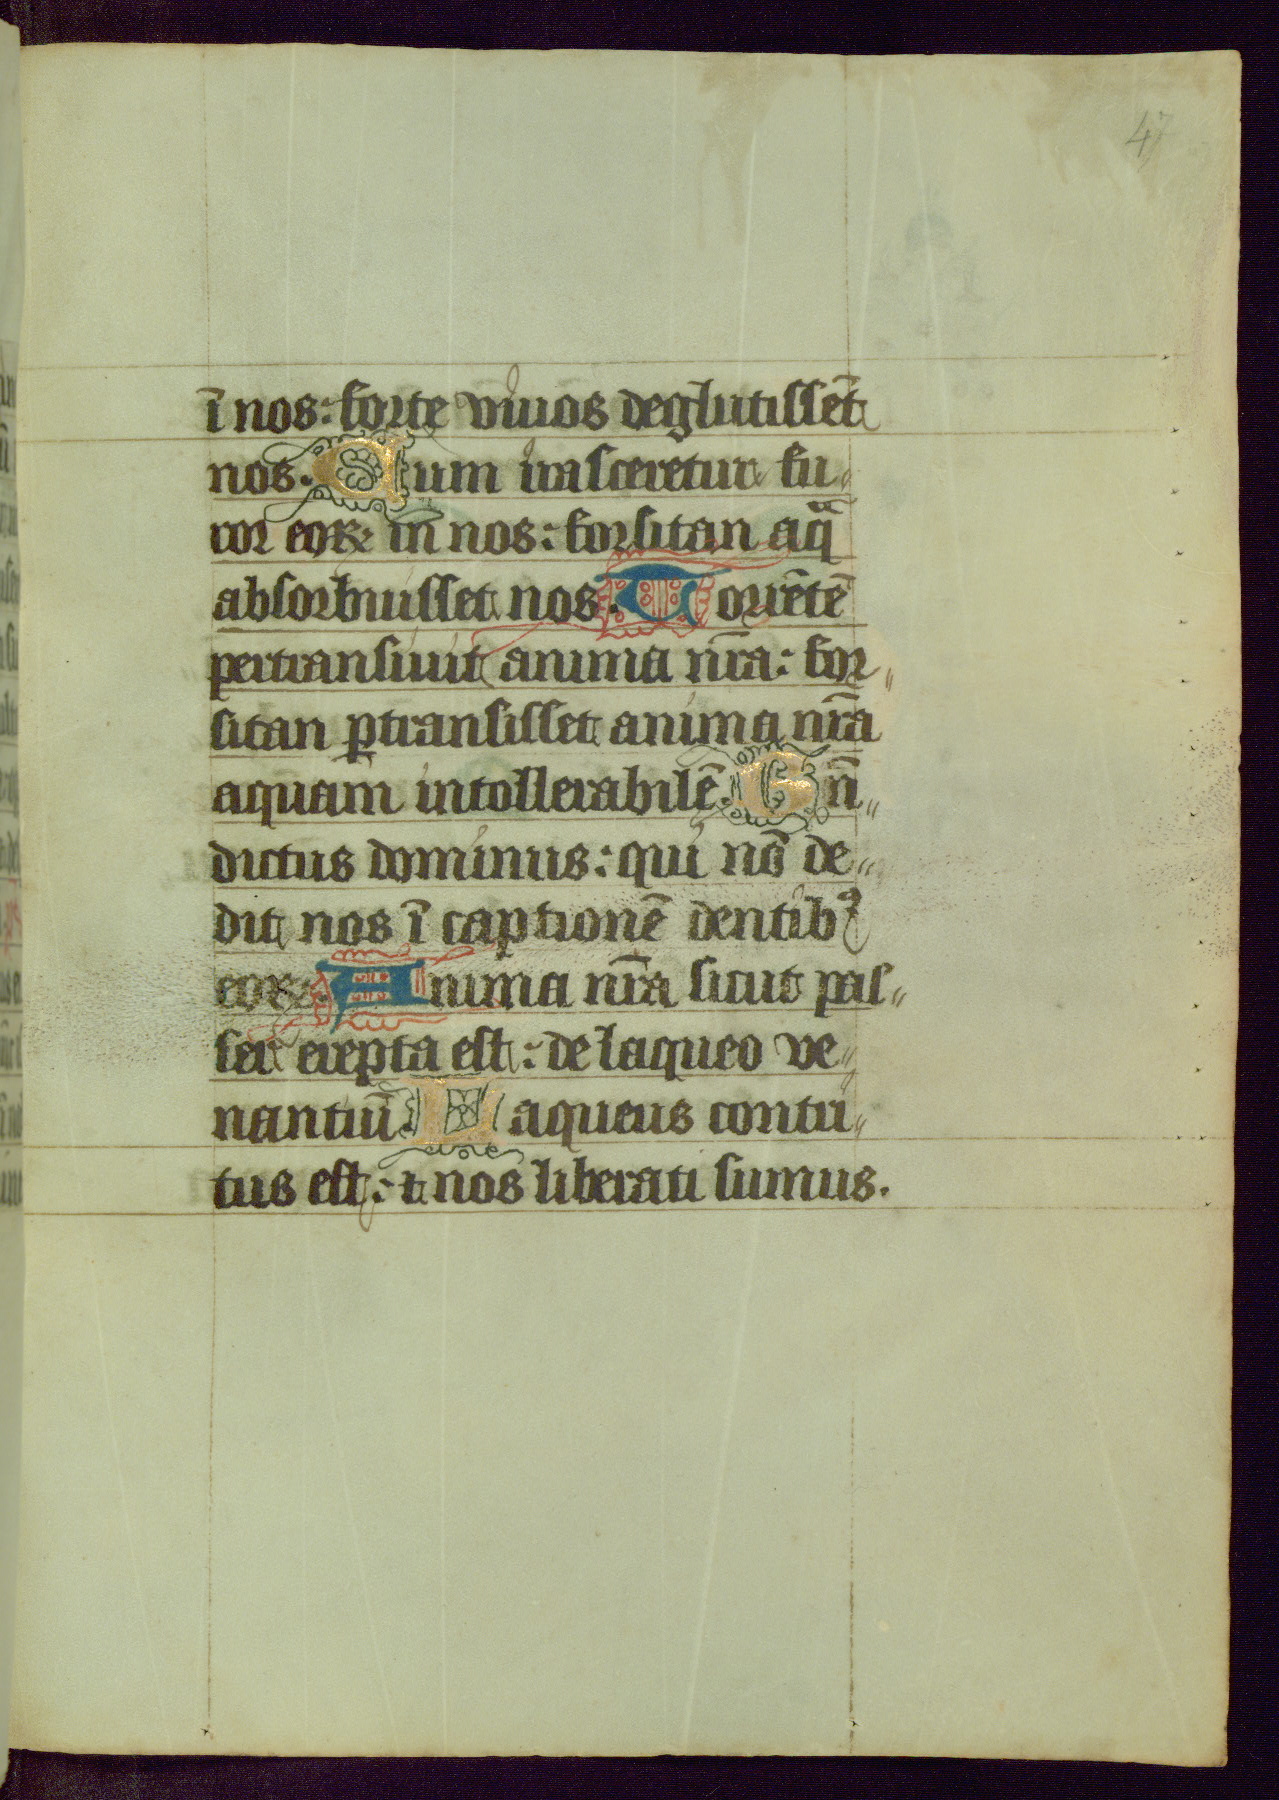 47
ī nos: forte viuos deglutissēt
nos. Cum irasceretur fu-
ror eorꝝ in nos: forsitan aqͣ
absorbuisset nos. Torrētē
pertransiuit anima nr̄a: for-
sitan ꝑtransisset anima nr̄a
aquam intollerabilē. Bn̄-
dictus dominus: qui nō de-
dit nos ī captionē dentibꝰ
eorꝝ. Anima nr̄a sicut pas-
ser erepta est: de laqueo ve-
nantiū. Laqueus contri-
tus est: ⁊ nos liberati sumus.